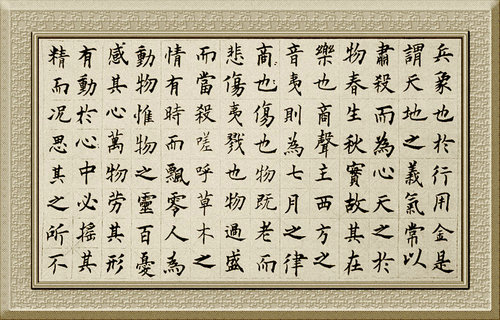 兵象也於行用金是
謂天地之義氣常以
肅殺而為心天之於
物春生秋實故其在
樂也商聲主西方之
音夷則為七月之律
商也傷也物既老而
悲傷夷戮也物過盛
而當殺嗟呼草木之
情有時而飄零人為
動物惟物之靈百憂
感其心萬物勞其形
有動於心中必搖其
精而况思其之所不